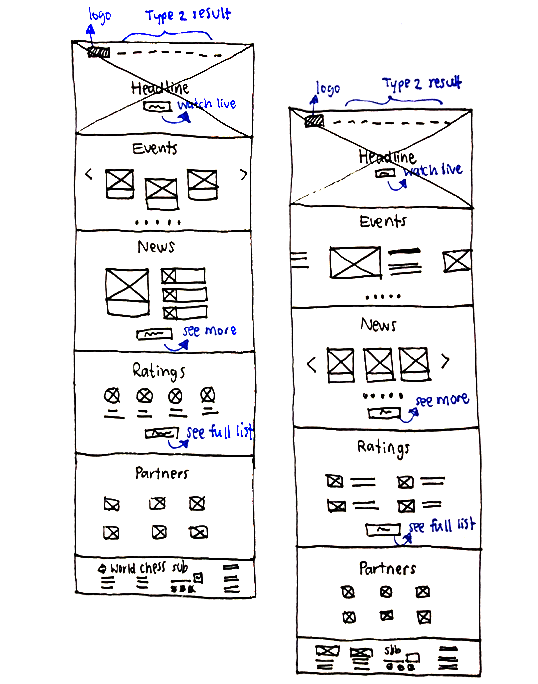 logo
Type 2 result
Headline
watch live
Events
News
see more
Ratings
see full list
Partners
World chess sub
logo
Type 2 result
Headline
watch live
Events
News
see more
Ratings
see full list
Partners
sub